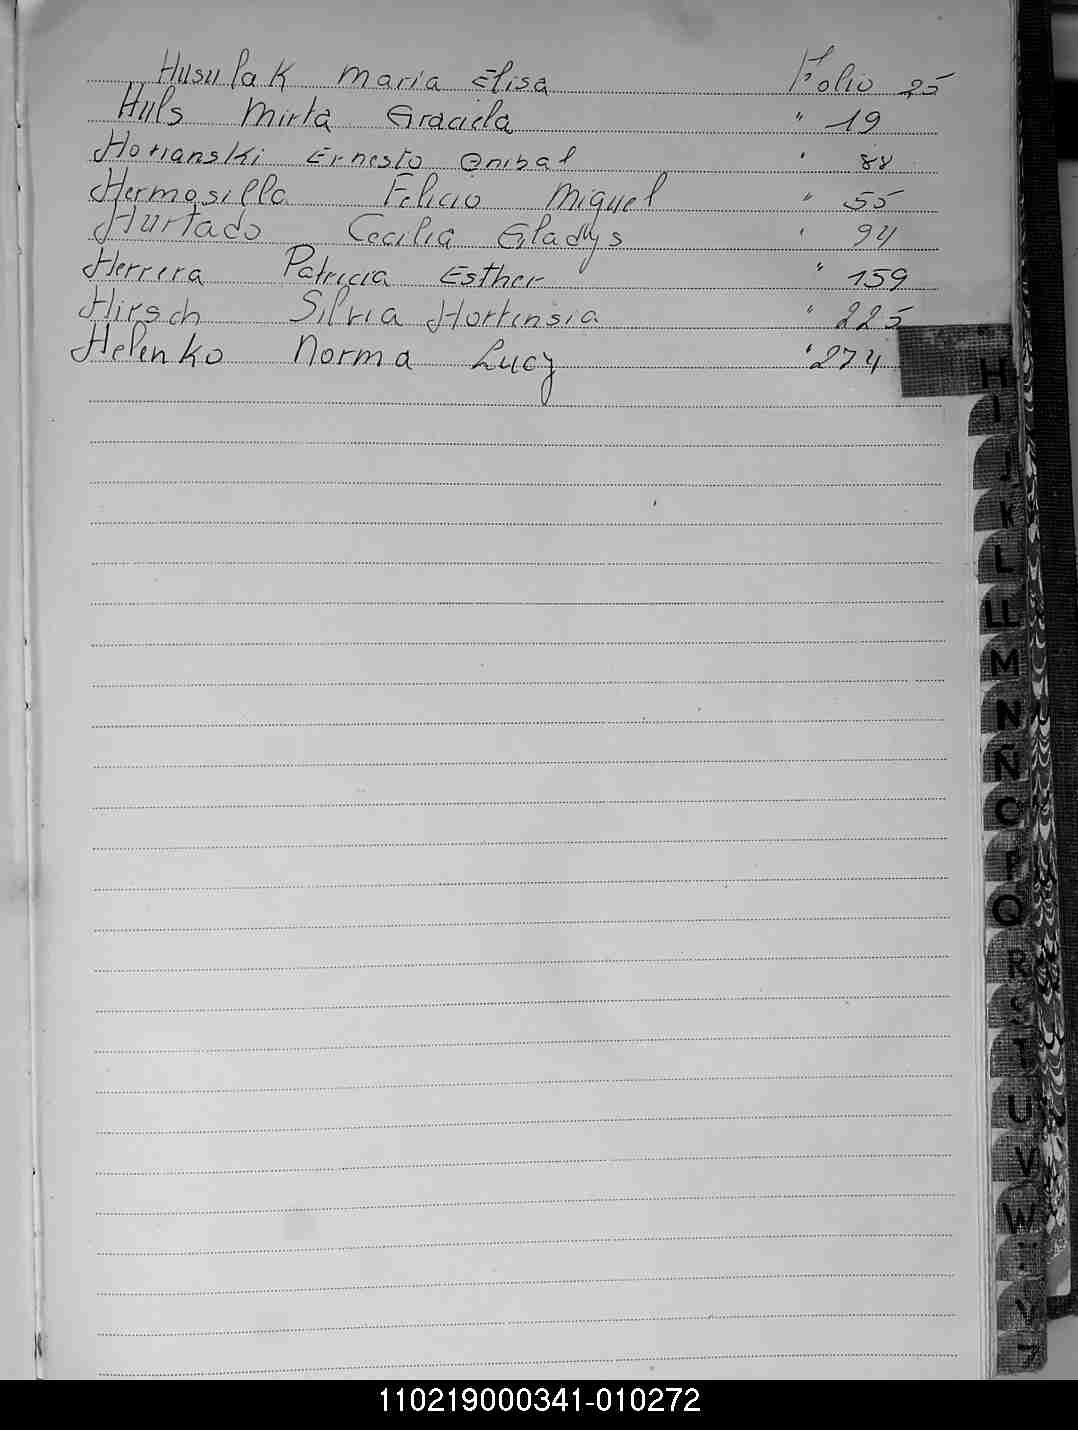 Husulak Maria Elisa Folio 25
Huls Mirta Graciela " 19
Horianski Ernesto Anibal " 88
Hermosilla Felicio Miguel " 55
Hurtado Cecilia Gladys " 94
Herrera Patricia Esther " 159
Hirsch Silvia Hortensia " 225
Helenko Norma Lucy " 274
H
I
J
K
L
LL
M
N
Ñ
O
P
Q
R
S
T
U
V
W
Y
Z
110219000341-010272